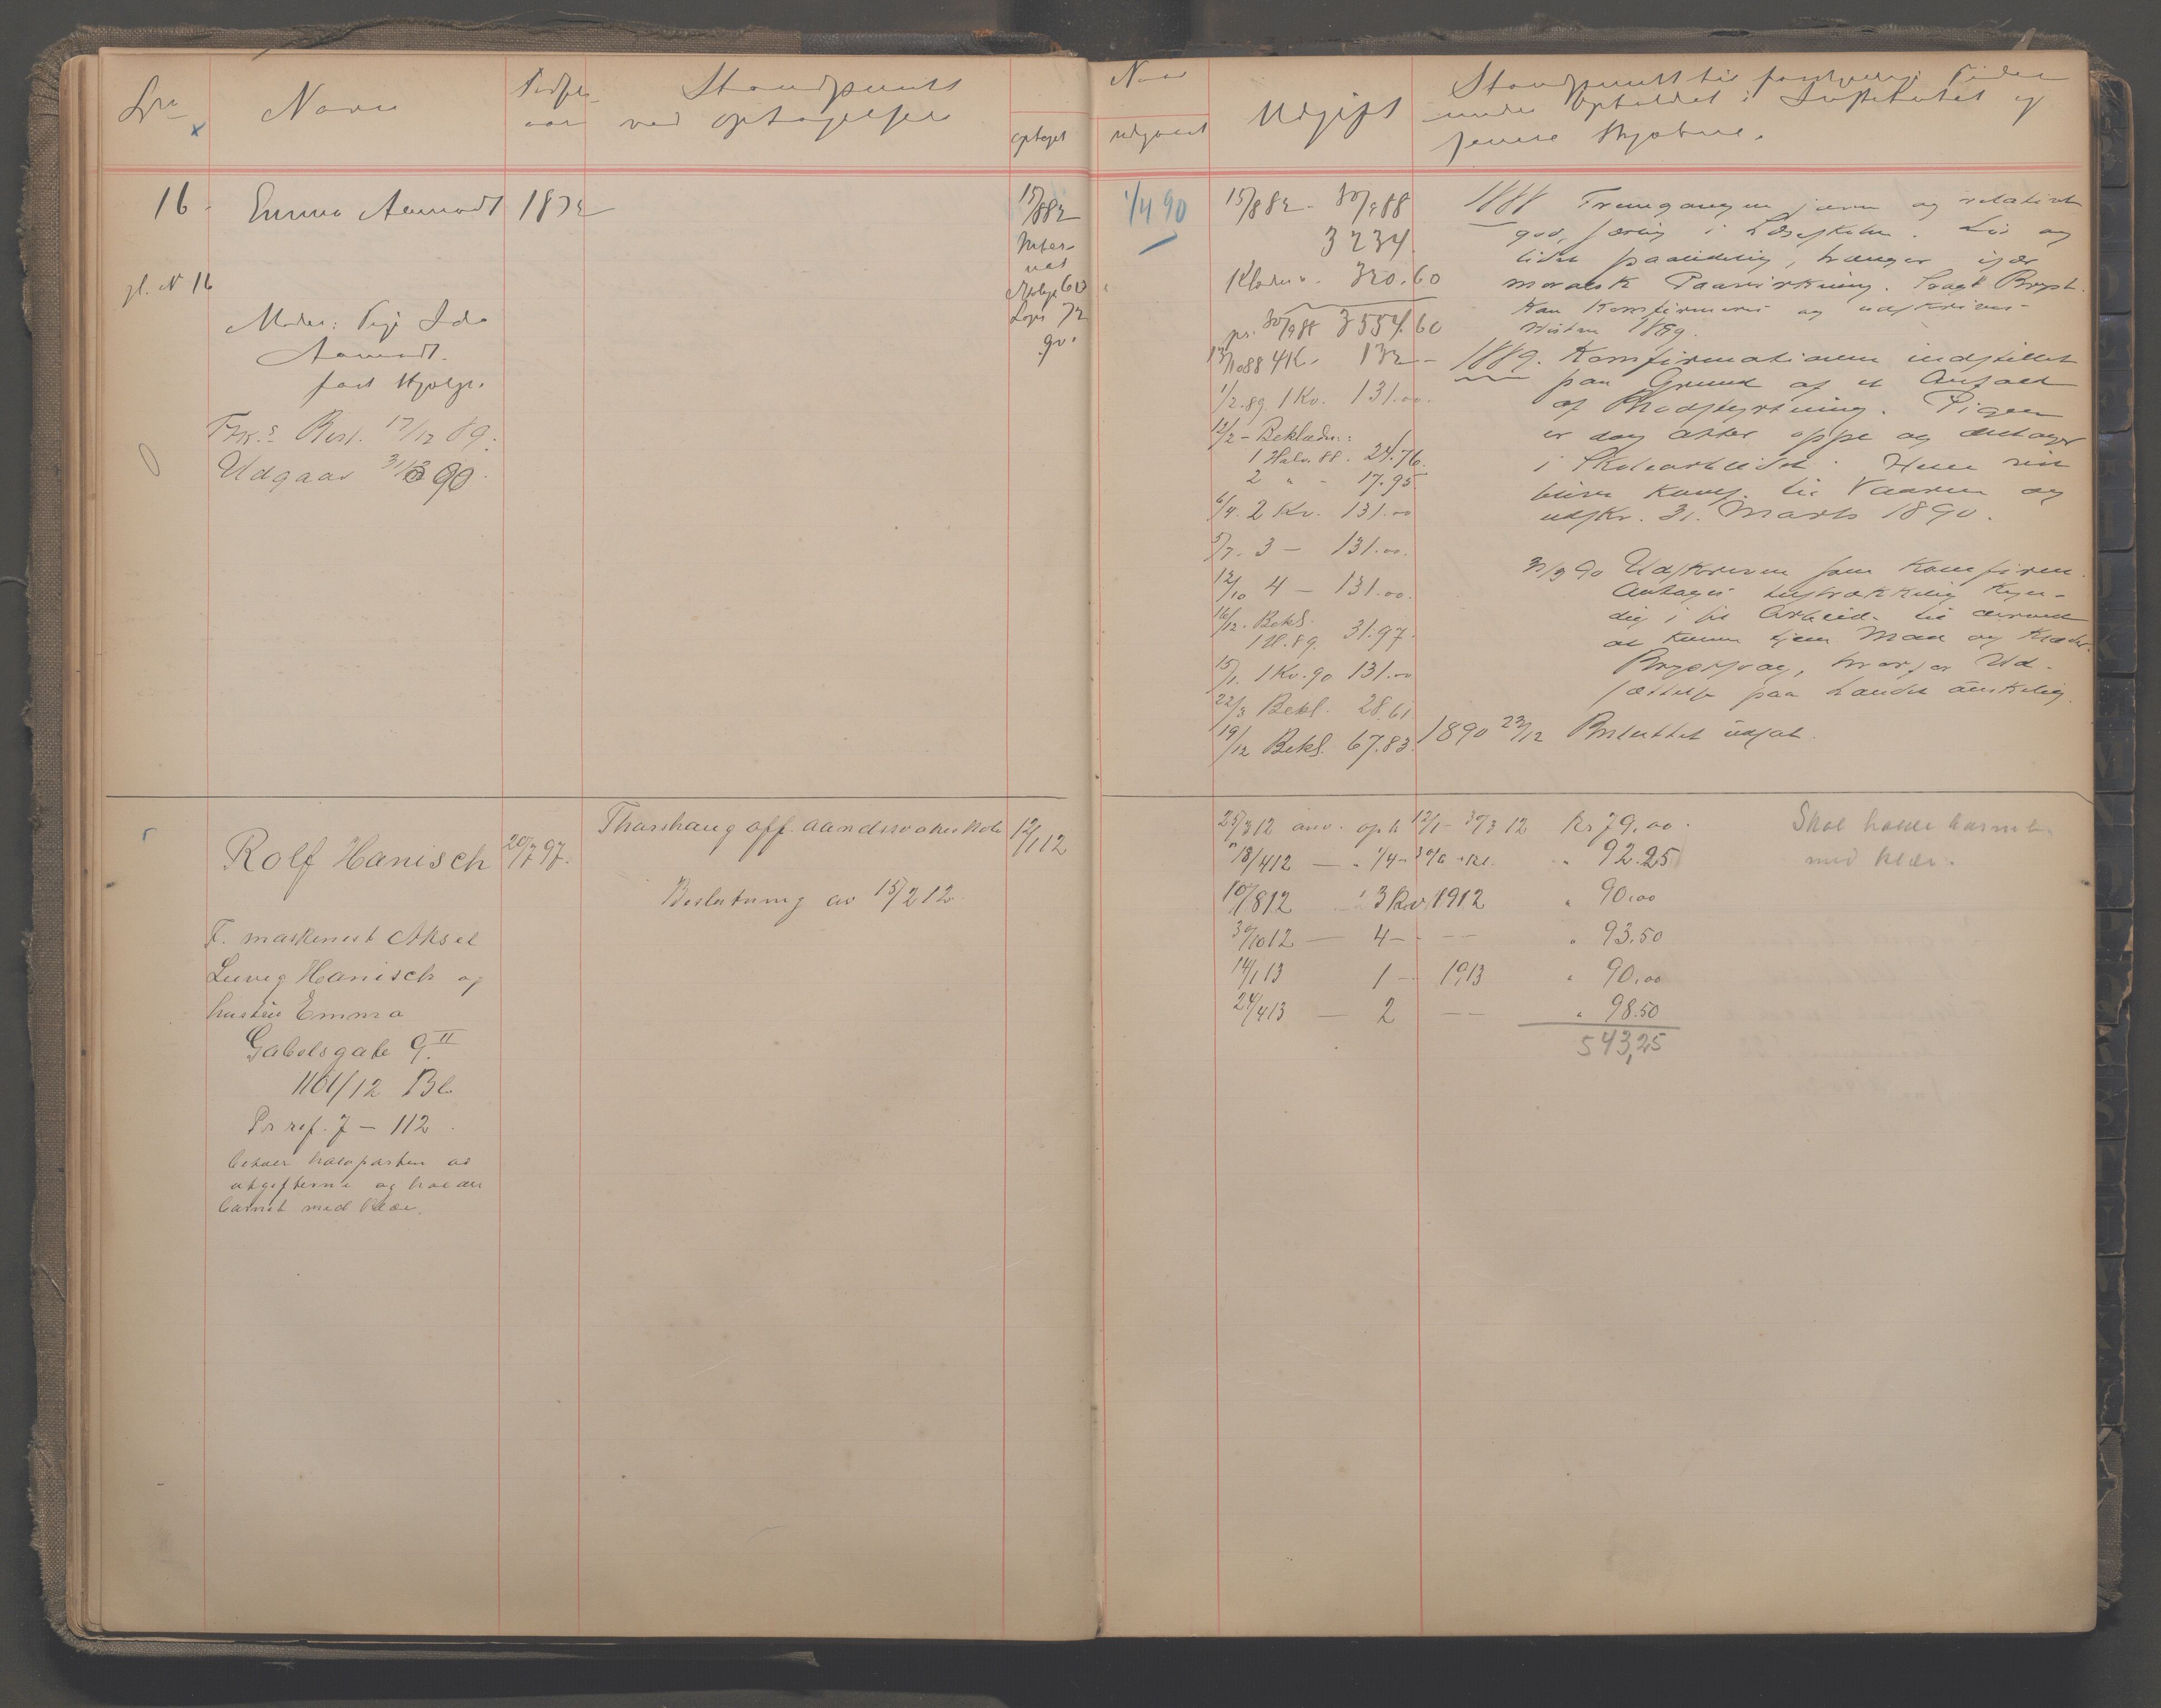 Navn
Fødsels
aar
Standpunkt
ved optagelsen
optaget
Naar
udgaaet
Udgift
Standpunkt til forskjellige Tider
under Opholdet i Institutet og
senere Skjæbne.
16
Emma Aamodt
1872
gl. N 16
Moder: Pige Ida
Aamodt.
fast Hjælp.
Udgaar 31/3 90.
15/8 82
Inter-
nat
60
72
1/4 90
15/8 82 - 30/9 88
3234.
Klæder 320.60
pr. 30/9 88 3554.60
13/10 88 4 K. 132 -
1/2.89. 1 Kv. 131.00.
12/2 - Beklædn.:
1 Halv. 88. 24.76.
2 " - 17.95
6/4. 2 Kv. 131.00
5/7. 3 - 131.00.
12/10 4 - 131.00.
16/12. Bekl.
1 H. 89. 31.97.
15/1. 1 Kv. 90 131.00
22/3 Bekl. 28.61
19/12 Bekl. 67.83.
1888 Fremgangen jævn og relativt
god, særlig i Læseskolen.
lidet paalidelig, trænger især
moralsk Paavirkning. Svagt Bryst.
Kan konfirmeres og udskrives
Høsten 1889.
1889. Konfirmationen indstillet
paa Grund af et Anfald
af Blodstyrtning. Pigen
er dog atter oppe og deltager
i Skolearbeidet. Hun vil
blive konf. til Vaaren og
udskr. 31. Marts 1890.
31/3 90 Udskreven som konfirm.
Antages tilstrækkelig kyn-
dig i sit Arbeide til
at kunne tjene Mad og Klæder.
Brystsvag, hvorfor Ud-
sættelse paa Landet ønskelig.
1890 23/12 Besluttet udsat.
Rolf Hanisch
20/7 97.
Thorshaug off. aandssvakeskole
12/1 12
Beslutning av 15/2 12.
F. maskinist Aksel
Ludvig Hanisch og
hustru Emma
Gabelsgate 9 II
1101/12 Bl
Pr ref. 7 - 112.
betaler halvparten av
utgifterne og holder
barnet med klær.
25/3 12 anv. oph. 12/1 - 30/3 12 Kr 79.00.
18/4 12 — " 1/4 - 30/6 + kl. " 92.25
10/8 12 " 3 Kv. 1912 " 90.00
30/10 12 — 4 - — " 93.50
14/1 13 1 - 1913 " 90.00
24/4 13 — 2 — " 98.50
543,25
Skal holde barnet
med klær.